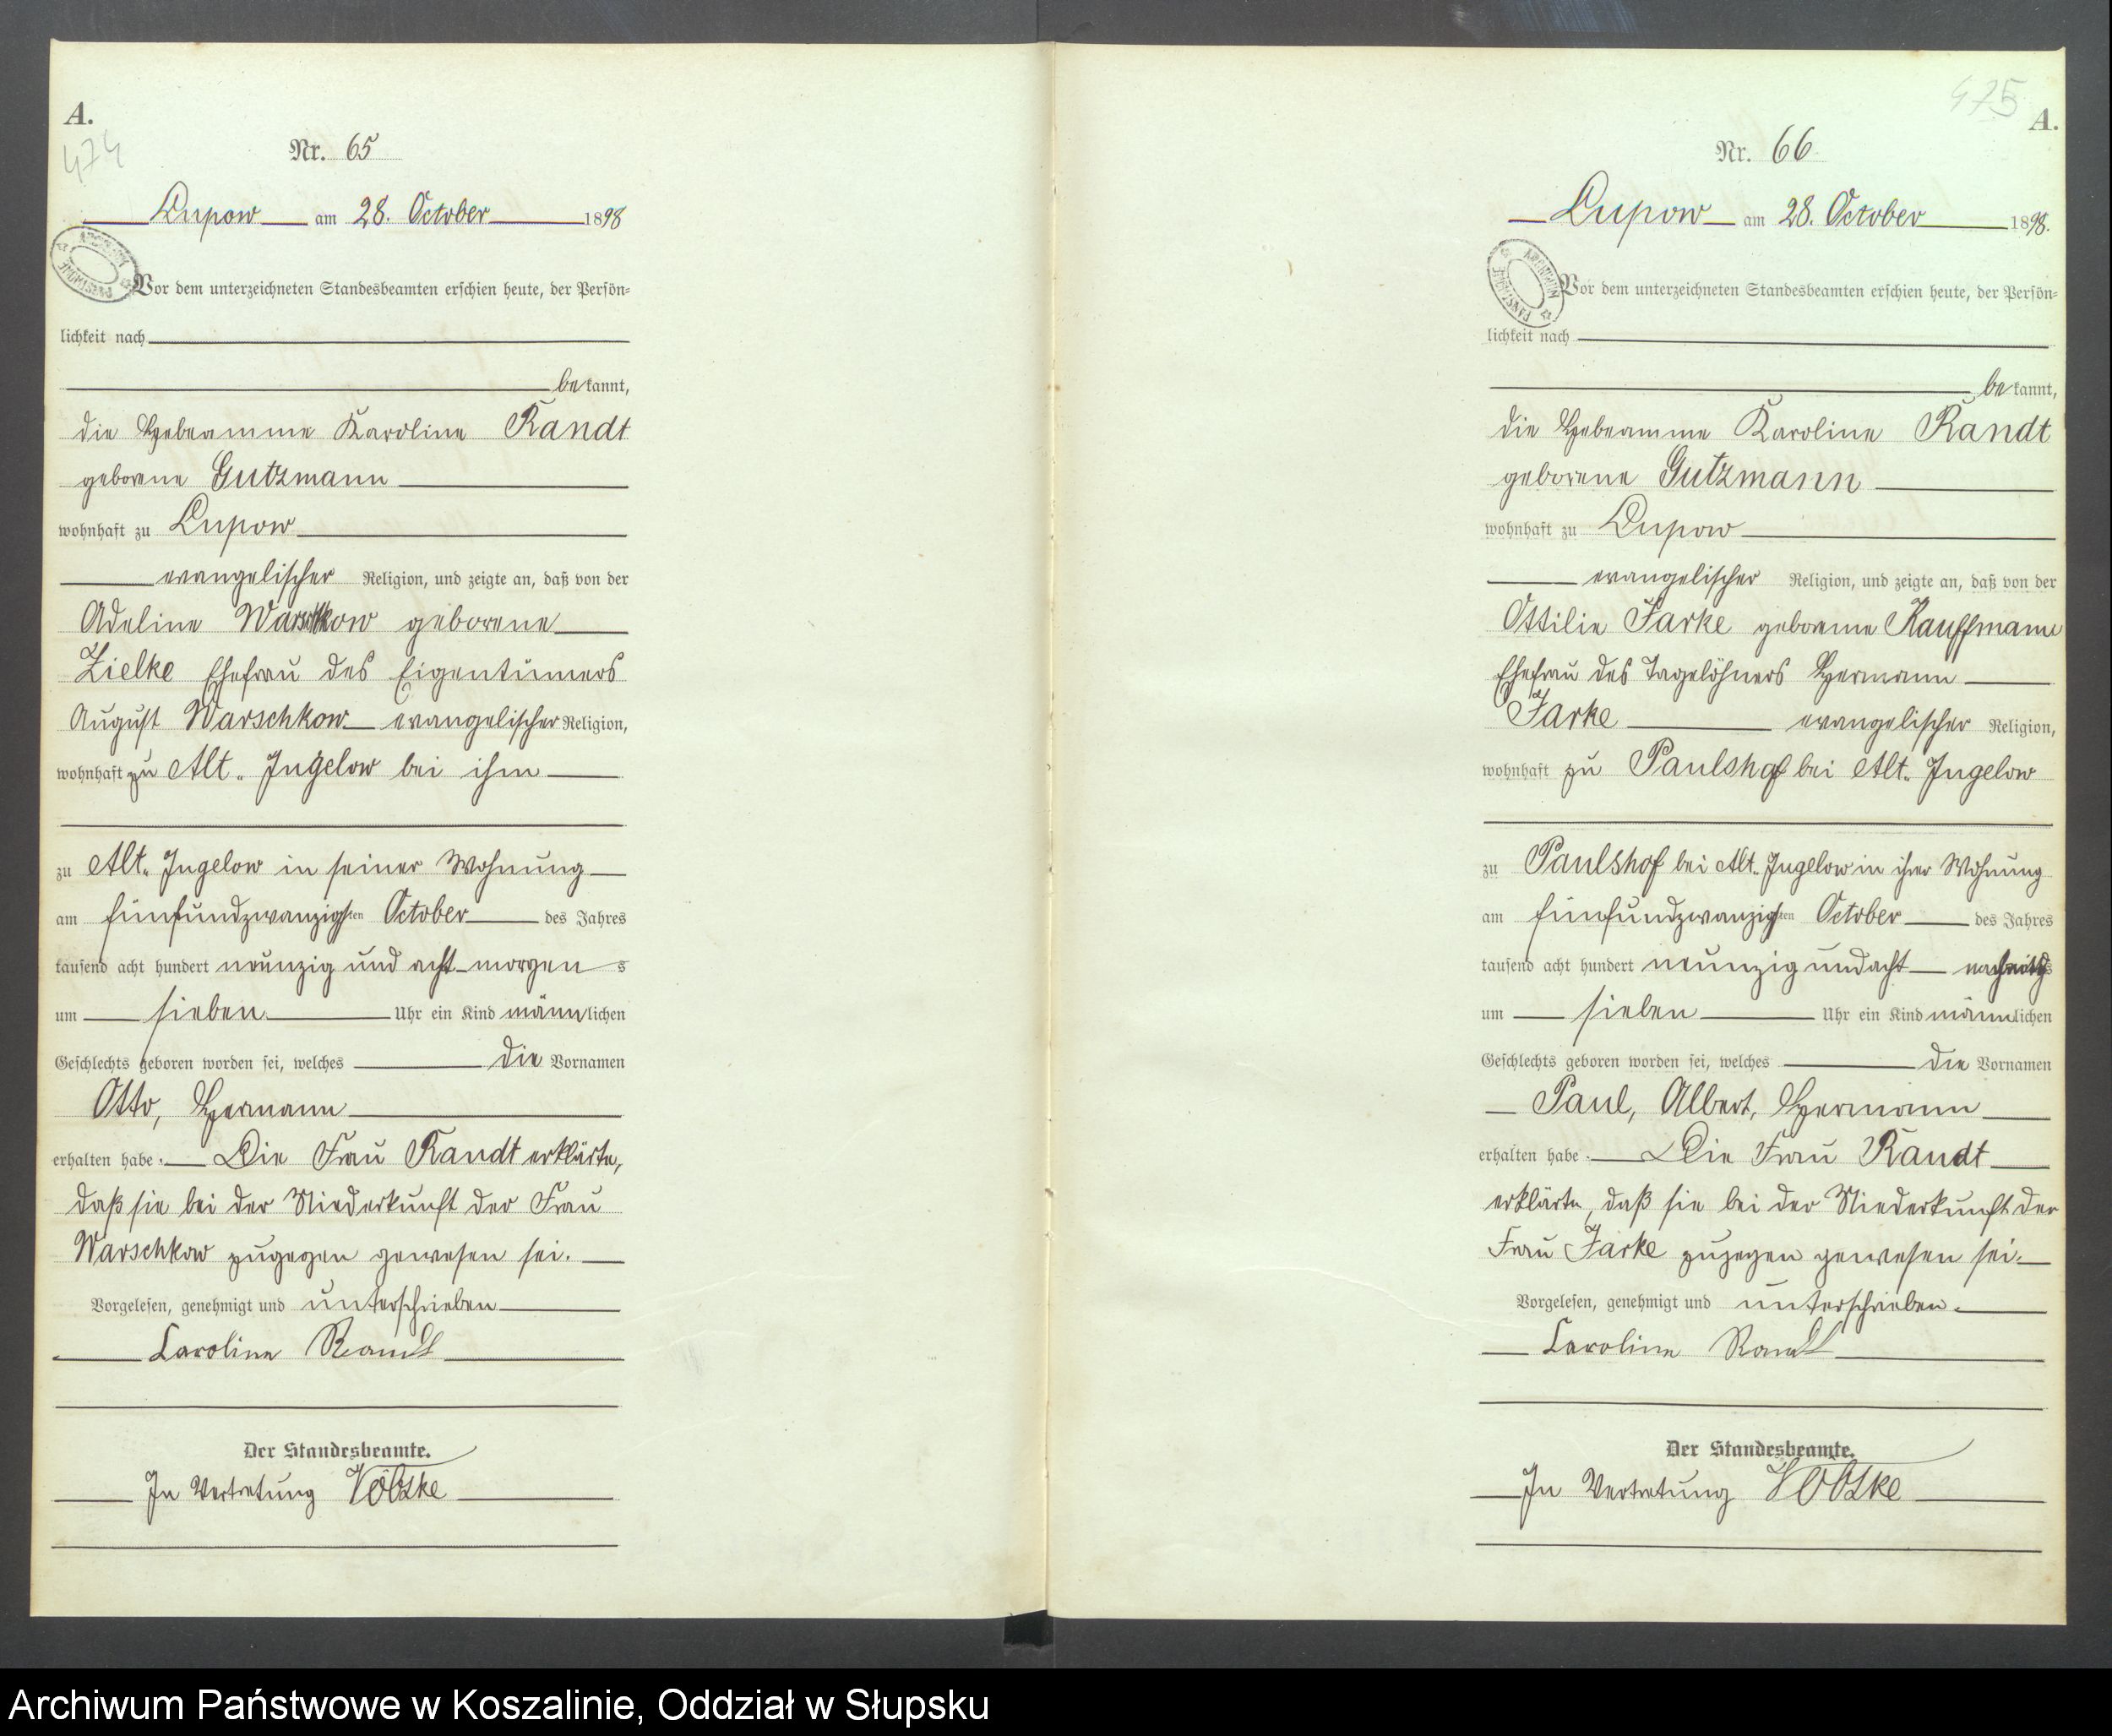 A.
474
Nr. 65
Lupow am 28. October 1898
Vor dem unterzeichneten Standesbeamten erschien heute, der Persön=
lichkeit nach
bekannt,
die Hebeamme Karoline Randt
geborene Gutzmann
wohnhaft zu Lupow
evangelischer Religion, und zeigte an, daß von der
Adeline Warschkow geborene
Zielke Ehefrau des Eigentümers
August Warschkow evangelischer Religion,
wohnhaft zu Alt-Jugelow bei ihm
zu Alt-Jugelow in seiner Wohnung
am fünfundzwanzigsten October des Jahres
tausend acht hundert neunzig und acht morgens
um sieben Uhr ein Kind männlichen
Geschlechts geboren worden sei, welches die Vornamen
Otto, Hermann
erhalten habe. Die Frau Randt erklärte,
daß sie bei der Niederkunft der Frau
Warschkow zugegen gewesen sei.
Vorgelesen, genehmigt und unterschrieben
Caroline Randt
Der Standesbeamte.
In Vertretung
475
A.
Nr. 66
Lupow am 28. October 1898.
Vor dem unterzeichneten Standesbeamten erschien heute, der Persön=
lichkeit nach
bekannt,
die Hebeamme Karoline Randt
geborene Gutzmann
wohnhaft zu Lupow
evangelischer Religion, und zeigte an, daß von der
Ottilie Jarke geborene Kauffmann
Ehefrau des Tagelöhners Hermann
Jarke evangelischer Religion,
wohnhaft zu Paulshof bei Alt-Jugelow
zu Paulshof bei Alt-Jugelow in ihrer Wohnung
am fünfundzwanzigsten October des Jahres
tausend acht hundert neunzig und acht nachmittags
um sieben Uhr ein Kind männlichen
Geschlechts geboren worden sei, welches die Vornamen
Paul, Albert, Hermann
erhalten habe. Die Frau Randt
erklärte, daß sie bei der Niederkunft der
Frau Jarke zugegen gewesen sei.
Vorgelesen, genehmigt und unterschrieben.
Caroline Randt
Der Standesbeamte.
In Vertretung
Archiwum Państwowe w Koszalinie, Oddział w Słupsku